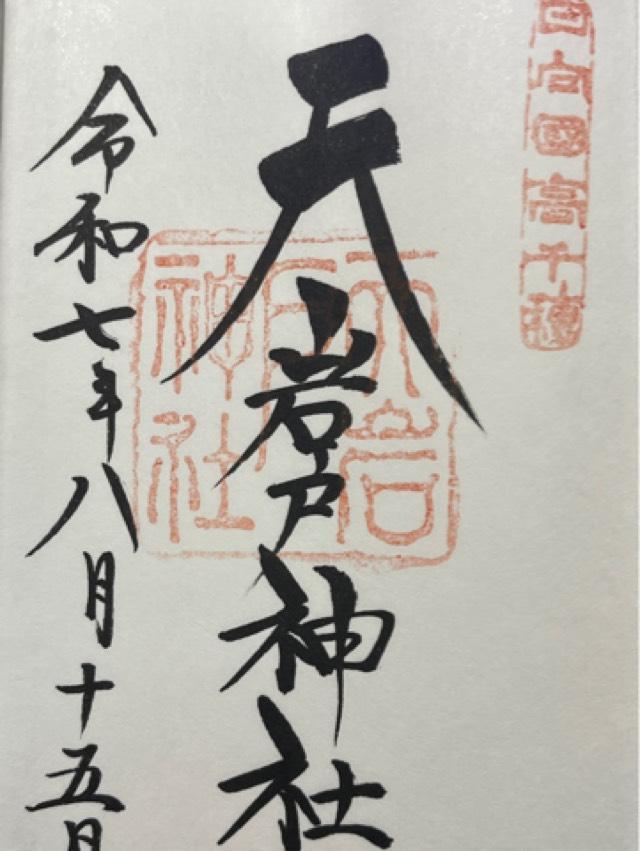 日向國高千穂
天岩戸神社
天岩戸神社
令和七年八月十五日